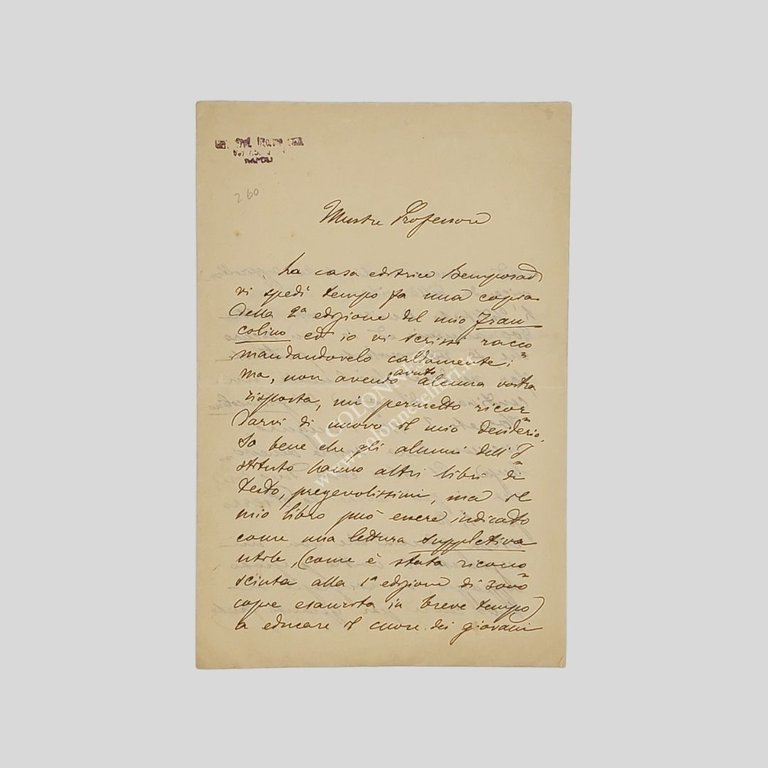 NAPOLI
260
Illustre Professore
La casa editrice Bemporad
vi spedì tempo fa una copia
della 2ª edizione del mio Fran
colino ed io vi scrissi racco
mandandovelo caldamente;
ma, non avendo avuto alcuna vostra
risposta, mi permetto ricor
darvi di nuovo il mio desiderio.
So bene che gli alunni dell'I
stituto hanno altri libri di
testo, pregevolissimi, ma il
mio libro può essere indicato
come una lettura suppletiva
utile, (come è stata ricono
sciuta alla 1ª edizione di 3000
copie esaurita in breve tempo)
a educare il cuore dei giovani
I COLONNESE
www.colonneselibri.it